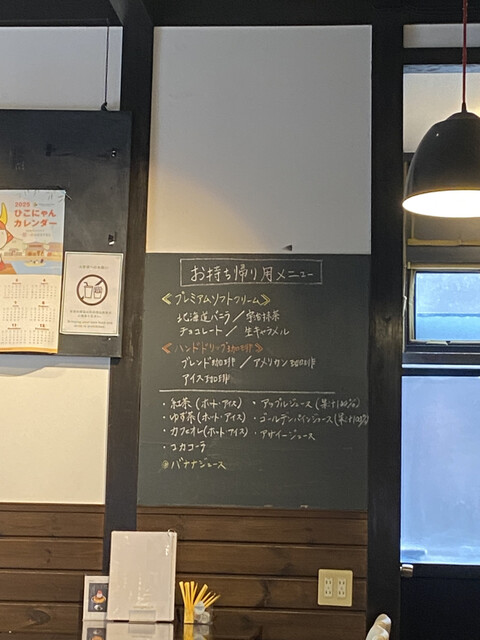 2025
ひこにゃん
カレンダー
お持ち帰り用メニュー
≪プレミアムソフトクリーム≫
北海道バニラ / 宇治抹茶
チョコレート / 生キャラメル
≪ハンドドリップ珈琲≫
ブレンド珈琲 / アメリカン珈琲
アイス珈琲
・紅茶 (ホット・アイス) ・アップルジュース (果汁100%)
・ゆず茶 (ホット・アイス) ・ゴールデンパインジュース (果汁100%)
・カフェオレ (ホット・アイス) ・アサイージュース
・コカコーラ
・バナナジュース